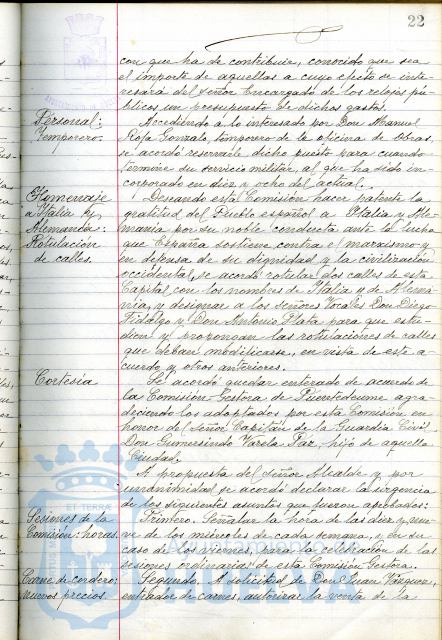 22
con que ha de contribuir, conocido que sea
el importe de aquellas a cuyo efecto se inte-
resará del señor Encargado de los relojes pú-
blicos un presupuesto de dichos gastos.
Personal: Accediendo a lo interesado por Don Manuel
Temporero. Rofa Gonzalo, temporero de la oficina de Obras,
se acordó reservarle dicho puesto para cuando
termine su servicio militar, al que ha sido in-
corporado en diez y ocho del actual.
Homenaje Deseando esta Comisión hacer patente la
a Italia y gratitud del Pueblo español a Italia y Ale-
Alemania: mania por su noble conducta ante la lucha
Rotulación que España sostiene contra el marxismo y
de calles. en defensa de su dignidad y la civilización
occidental, se acordó rotular dos calles de esta
Capital con los nombres de Italia y de Alema-
nia, y designar a los señores Vocales Don Diego
Fidalgo y Don Antonio Plata para que estu-
dien y propongan las rotulaciones de calles
que deban modificarse, en vista de este a-
cuerdo y otros anteriores.
Cortesía Se acordó quedar enterado de acuerdo de
la Comisión Gestora de Puentedeume agra-
deciendo los adoptados por esta Comisión en
honor del señor Capitán de la Guardia Civil
Don Gumersindo Varela Paz, hijo de aquella
Ciudad.
A propuesta del señor Alcalde y por
unanimidad se acordó declarar la urgencia
de los siguientes asuntos que fueron aprobados:
Sesiones de la Primero. Señalar la hora de las diez y nue-
Comisión: horas. ve de los miércoles de cada semana, y en su
caso de los viernes, para la celebración de las
sesiones ordinarias de esta Comisión Gestora.
Carne de cordero: Segundo. A solicitud de Don Juan Vázquez,
nuevos precios. entrador de carnes, autorizar la venta de la